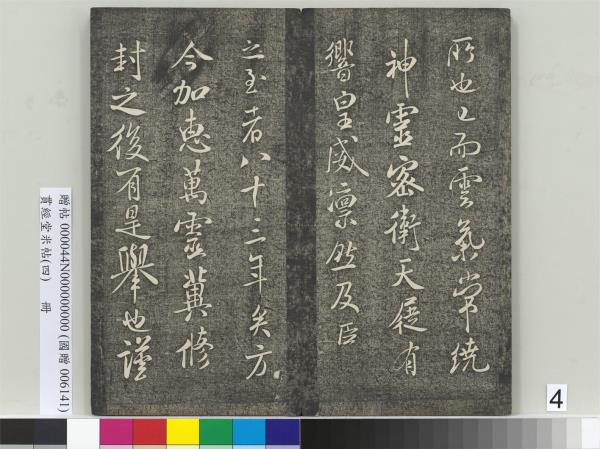 所也已而雲氣常繞
神靈密衛天蹤有
響皇威凜然及臣
之至者八十三年矣方
今加惠萬靈冀修
封之後有是舉也謹
贈帖 000044N000000000 (國贈 006141)
貫經堂米帖(四) 冊
4